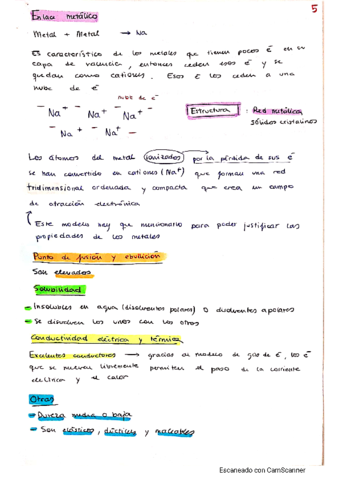 5
Enlace metálico
Metal + Metal → Na
Es característico de los metales que tienen pocos é en su
capa de valencia, entonces ceden esos é y se
quedan como cationes. Esos é los ceden a una
nube de é
nube de é
Na⁺ Na⁺ Na⁺
Na⁺ Na⁺
Estructura : Red metálica
sólidos cristalinos
Los átomos del metal ionizados por la pérdida de sus é
se han convertido en cationes (Na⁺) que forman una red
tridimensional ordenada y compacta que crea un campo
de atracción electrónica
Este modelo hay que mencionarlo para poder justificar las
propiedades de los metales
Punto de fusión y ebullición
Son elevados
Solubilidad
- Insolubles en agua (disolventes polares) o disolventes apolares
- Se disuelven los unos con los otros
Conductividad eléctrica y térmica
Excelentes conductores → gracias al modelo de gas de é, los é
que se mueven libremente permiten el paso de la corriente
eléctrica y el calor
Otras
- Dureza media o baja
- Son elásticos, dúctiles y maleables
Escaneado con CamScanner